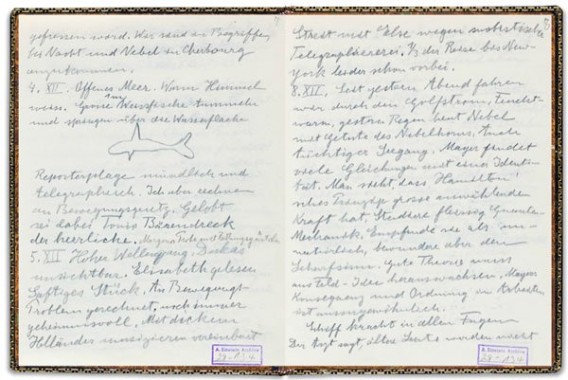 gefressen ward. Wir sind im Begriffe,
bei Nacht und Nebel in Cherbourg
anzukommen.
4. XII. Offenes Meer. Warm Himmel
weiss. Grosse Fische tummeln
und springen über die Wasserfläche
Reporterplage mündlich und
telegraphisch. Ich aber rechnete
an Bewegungsgesetz. Gelobt
sei dabei Bäendreck
der herrliche. Morgens und
5. XII Hoher Wellengang.
unsichtbar. Elisabeth gelesen
Saftiges Stück. An Bewegungs-
Problem gerechnet, noch immer
geheimnisvoll. Mit dickem
Holländer musizieren vereinbart
A. Einstein Archive
29-134
Streit mit Else wegen
Telegraphiererei. 1/3 der Reise bis New-
york leider schon vorbei.
8. XII. Seit gestern Abend fahren
wir durch den Golfstrom, Feucht-
warm, gestern Regen heut Nebel
mit Getute des Nebelhorns.
tüchtiger Seegang. Mayer findet
viele Gleichungen mit einer Identi-
tät. Man sieht, dass Hamilton'
sches Prinzip grosse auswählende
Kraft hat. Studiere fleissig Quanten-
Mechanik. Empfinde sie als un-
natürlich, bewundere aber den
Scharfsinn. Gute Theorie muss
aus Feld-Idee herauswachsen. Mayers
Konsequenz und Ordnung im Arbeiten
ist aussergewöhnlich.
Schiff kracht in allen Fugen
Der Arzt sagt, ältere Leute würden meist
A. Einstein Archive
29-134